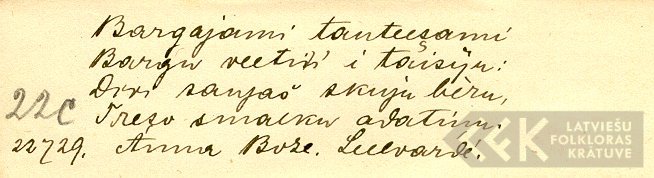 Bargajami tautiesami
Bargu vietiņ i taisiju:
Divi saujas skuju bēru,
Trešo smalku adatiņu.
22C
22729. Anna Bože. Lielvārdē.
LFK LATVIEŠU
FOLKLORAS
KRĀTUVE